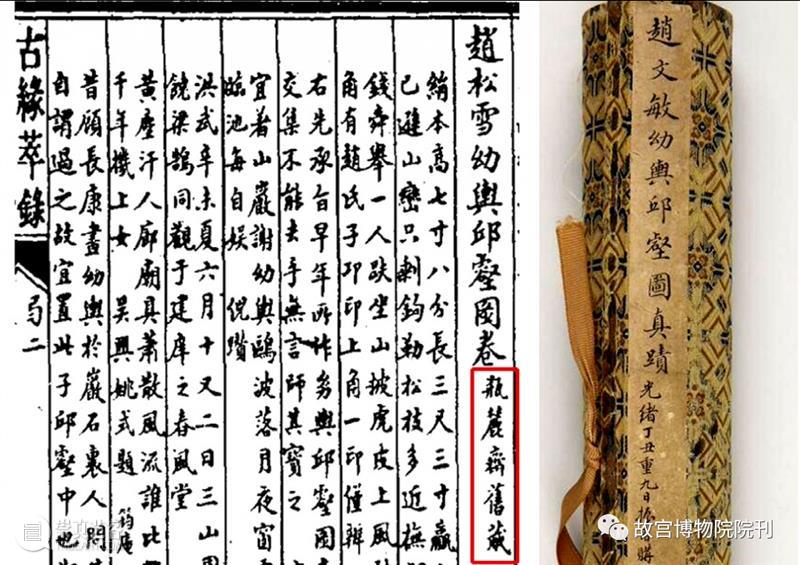 趙松雪幼輿邱壑圖卷 瓶麓齋舊藏
絹本高七寸八分長三尺三寸贏
已遜山巒只剩鈎勒松枝多近撫
錢舜舉一人趺坐山披虎皮上風
角有趙氏子印印上角一印僅辨
右先承旨早年所作幼輿邱壑圖
交集不能去手無言師其寶之
宜著山巖謝幼輿鷗波落月夜窗
臨池每自娛 倪瓚
洪武辛未夏六月十又二日三山
饒梁鵠同觀于建庠之春風堂
黃塵汗人廊廟具蕭散風流誰比
千年機上女 吳興姚式題 筠庵
昔顧長康畫幼輿於巖石裏人問
自謂過之故宜置此子邱壑中也
古緣萃錄
二
趙文敏幼輿邱壑圖真蹟
光緒丁丑重九日
購
故宫博物院院刊